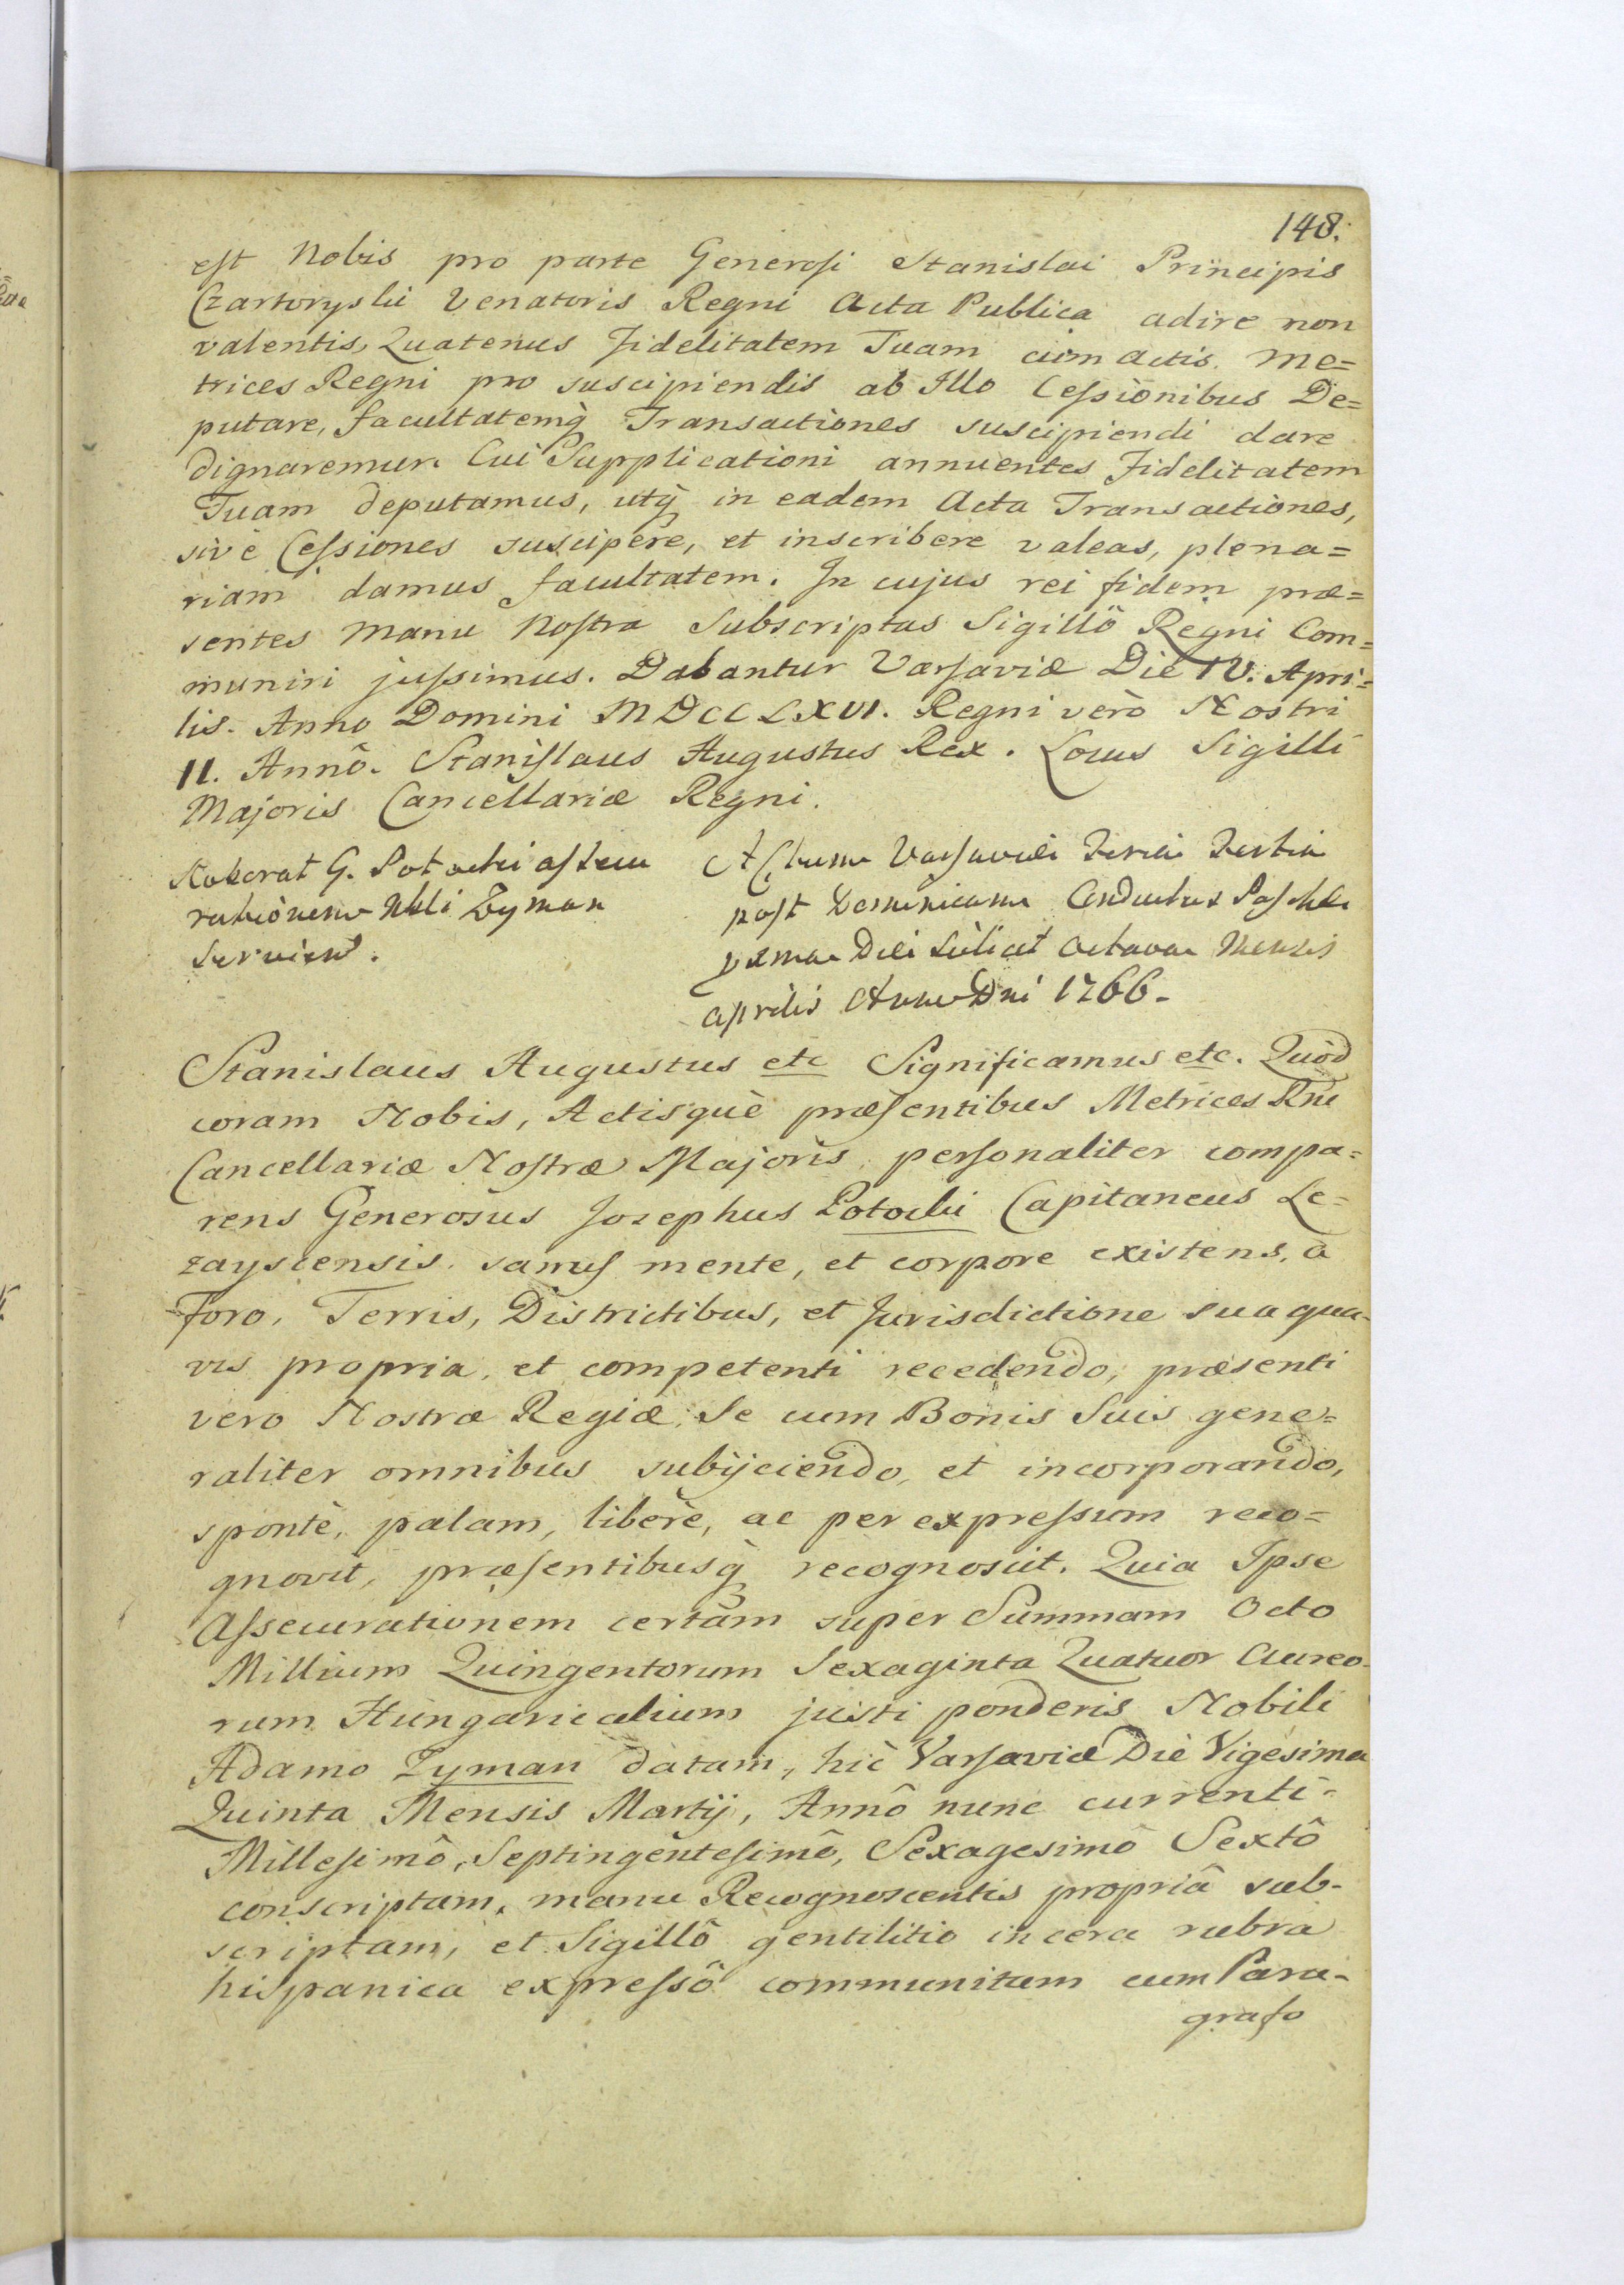 148.
est Nobis pro parte Generosi Stanislai Principis
Czartoryski Venatoris Regni Acta Publica adire non
valentis, Quatenus Fidelitatem Tuam cum Actis Me=
trices Regni pro suscipiendis ab Illo Cessionibus De=
putare, facultatemq̀ Transactiones suscipiendi dare
dignaremur. Cui Supplicationi annuentes Fidelitatem
Tuam deputamus, utq̀ in eadem Acta Transactiones,
sivè Cessiones suscipere, et inscribere valeas, plena=
riam damus facultatem. In cujus rei fidem præ=
sentes Manu Nostra Subscriptas Sigillô Regni Com=
muniri jussimus. Dabantur Varsaviæ Die IV. Apri=
lis. Anno Domini MDCCLXVI. Regni verò Nostri
II. Annô. Stanislaus Augustus Rex. Locus Sigilli
Majoris Cancellariæ Regni.
Roborat G. Potocki assecu
rationem Nbli Zyman
servien.
Actum Varsaviæ Feria Tertia
post Dominicam Conductus Paschæ
Die scilicet octava Mensis
Aprilis Anno Dni 1766.
Stanislaus Augustus etc Significamus etc. Quòd
coram Nobis, Actisquè præsentibus Metrices Rni
Cancellariæ Nostræ Majoris, personaliter compa=
rens Generosus Josephus Potocki Capitaneus Le=
zayscensis. sanus mente, et corpore existens, a
Foro, Terris, Districtibus, et Jurisdictione sua qua-
vis propria, et competenti recedendo, præsenti
vero Nostræ Regiæ, Se cum Bonis Suis gene=
raliter omnibus subijciendo, et incorporando,
spontè, palam, liberè, ac per expressum reco=
gnovit, præsentibusq̀ recognoscit. Quia Ipse
Assecurationem certam super Summam Octo
Millium Quingentorum Sexaginta Quatuor Aureo-
rum Hungaricalium justi ponderis Nobili
Adamo Zyman datam, hic Varsaviæ Diè Vigesima
Quinta Mensis Martij, Annô nunc currenti-
Millesimô, Septingentesimô, Sexagesimô Sextô
conscriptam, manu Recognoscentis propriâ sub-
scriptam, et Sigillô gentilitio in cera rubra
hispanica expressô communitam cum Para-
grafo